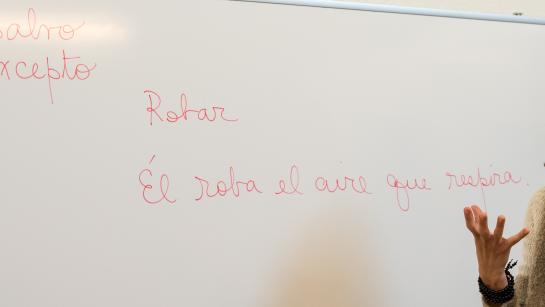 salvo
excepto
Robar
Él roba el aire que respira.